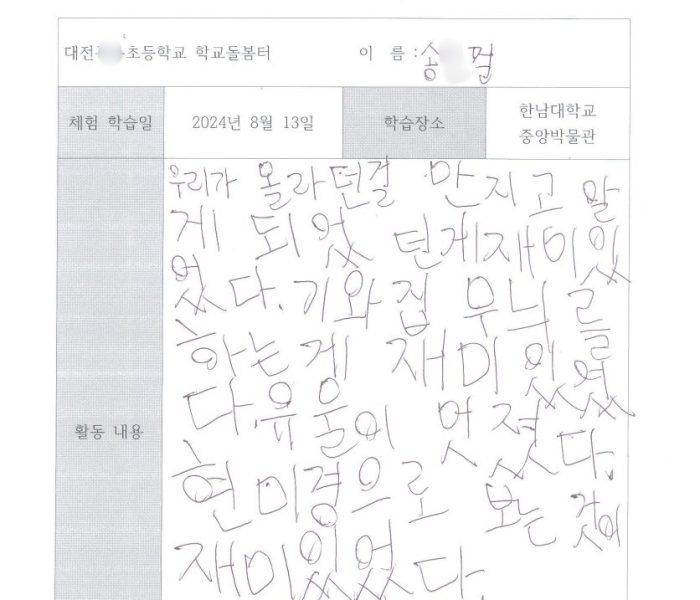 대전 초등학교 학교돌봄터 이 름 : 송 필
체험 학습일 2024년 8월 13일 학습장소 한남대학교 중앙박물관
활동 내용
우리가 몰라턴걸 만지고 알
게 되었 던게재미있
었다. 기와집 무늬를
하는게 재미있었
다. 유울이 멋졌다.
현미경으로 보는 것이
재미있었다.